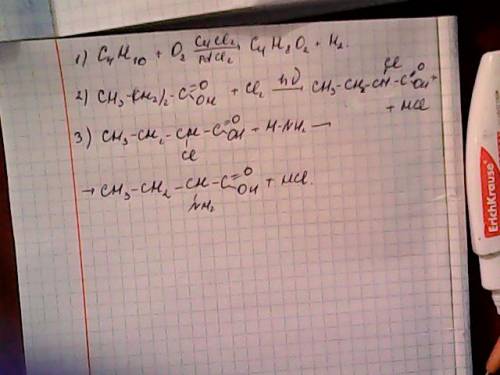 1) C₄H₁₀ + O₂ CuCl₂, PdCl₂ C₄H₈O₂ + H₂.
2) CH₃-(CH₂)₂-C=O OH + Cl₂ hν→ CH₃-CH₂-CH-C=O OH +
Cl
+ HCl
3) CH₃-CH₂-CH-C=O OH + H-NH₂ →
Cl
→ CH₃-CH₂-CH-C=O OH + HCl.
NH₂
ErichKrause